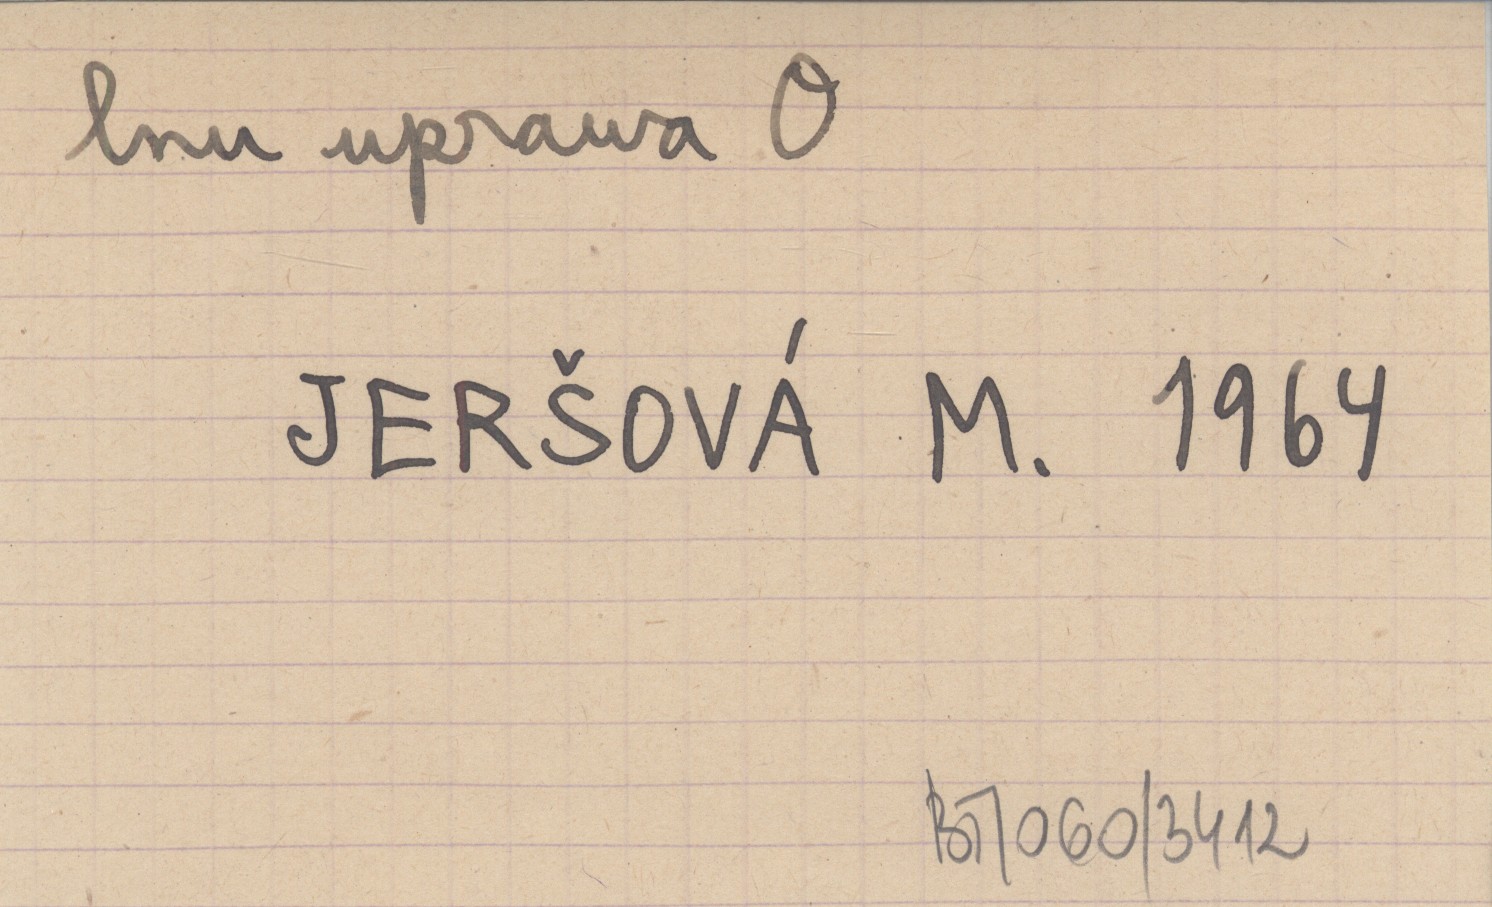 lnu uprawa O
JERŠOVÁ M. 1964
BT/060/3412